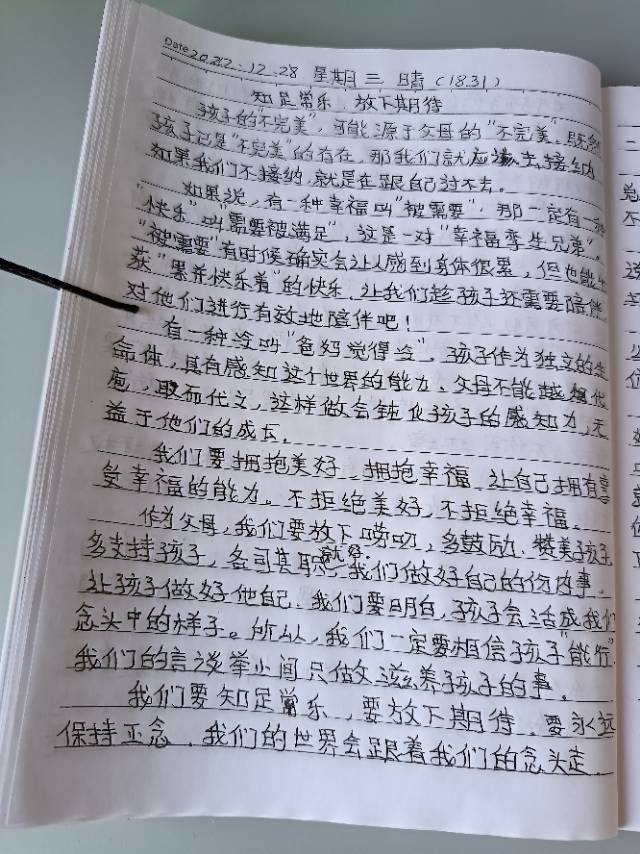 Date 2022.12.28 星期三 晴(18.31)
知足常乐、放下期待
孩子的"不完美",可能源于父母的"不完美。既然
孩子已是"不完美"的存在,那我们就应该去接纳,
如果我们不接纳,就是在跟自己过不去。
如果说,有一种幸福叫"被需要",那一定有一种
"快乐"叫"需要被满足",这是一对"幸福孪生兄弟"。
"被需要"有时候确实会让人感到身体很累,但也能
获"累并快乐着"的快乐,让我们趁孩子还需要陪伴,
对他们进行有效地陪伴吧!
有一种冷叫"爸妈觉得冷",孩子作为独立的生
命体,具有感知这个世界的能力、父母不能越俎代
庖,取而代之,这样做会钝化孩子的感知力,无
益于他们的成长。
我们要拥抱美好,拥抱幸福、让自己拥有享
受幸福的能力。不拒绝美好,不拒绝幸福。
作为父母,我们要放下唠叨,多鼓励、赞美孩子,
多支持孩子,各司其职,我们做好自己的份内事,
让孩子做好他自己、我们要明白,孩子会活成我们
念头中的样子。所以,我们一定要相信孩子"能行",
我们的言谈举止间只做滋养孩子的事。
我们要知足常乐、要放下期待、要永远
保持正念、我们的世界会跟着我们的念头走。
二